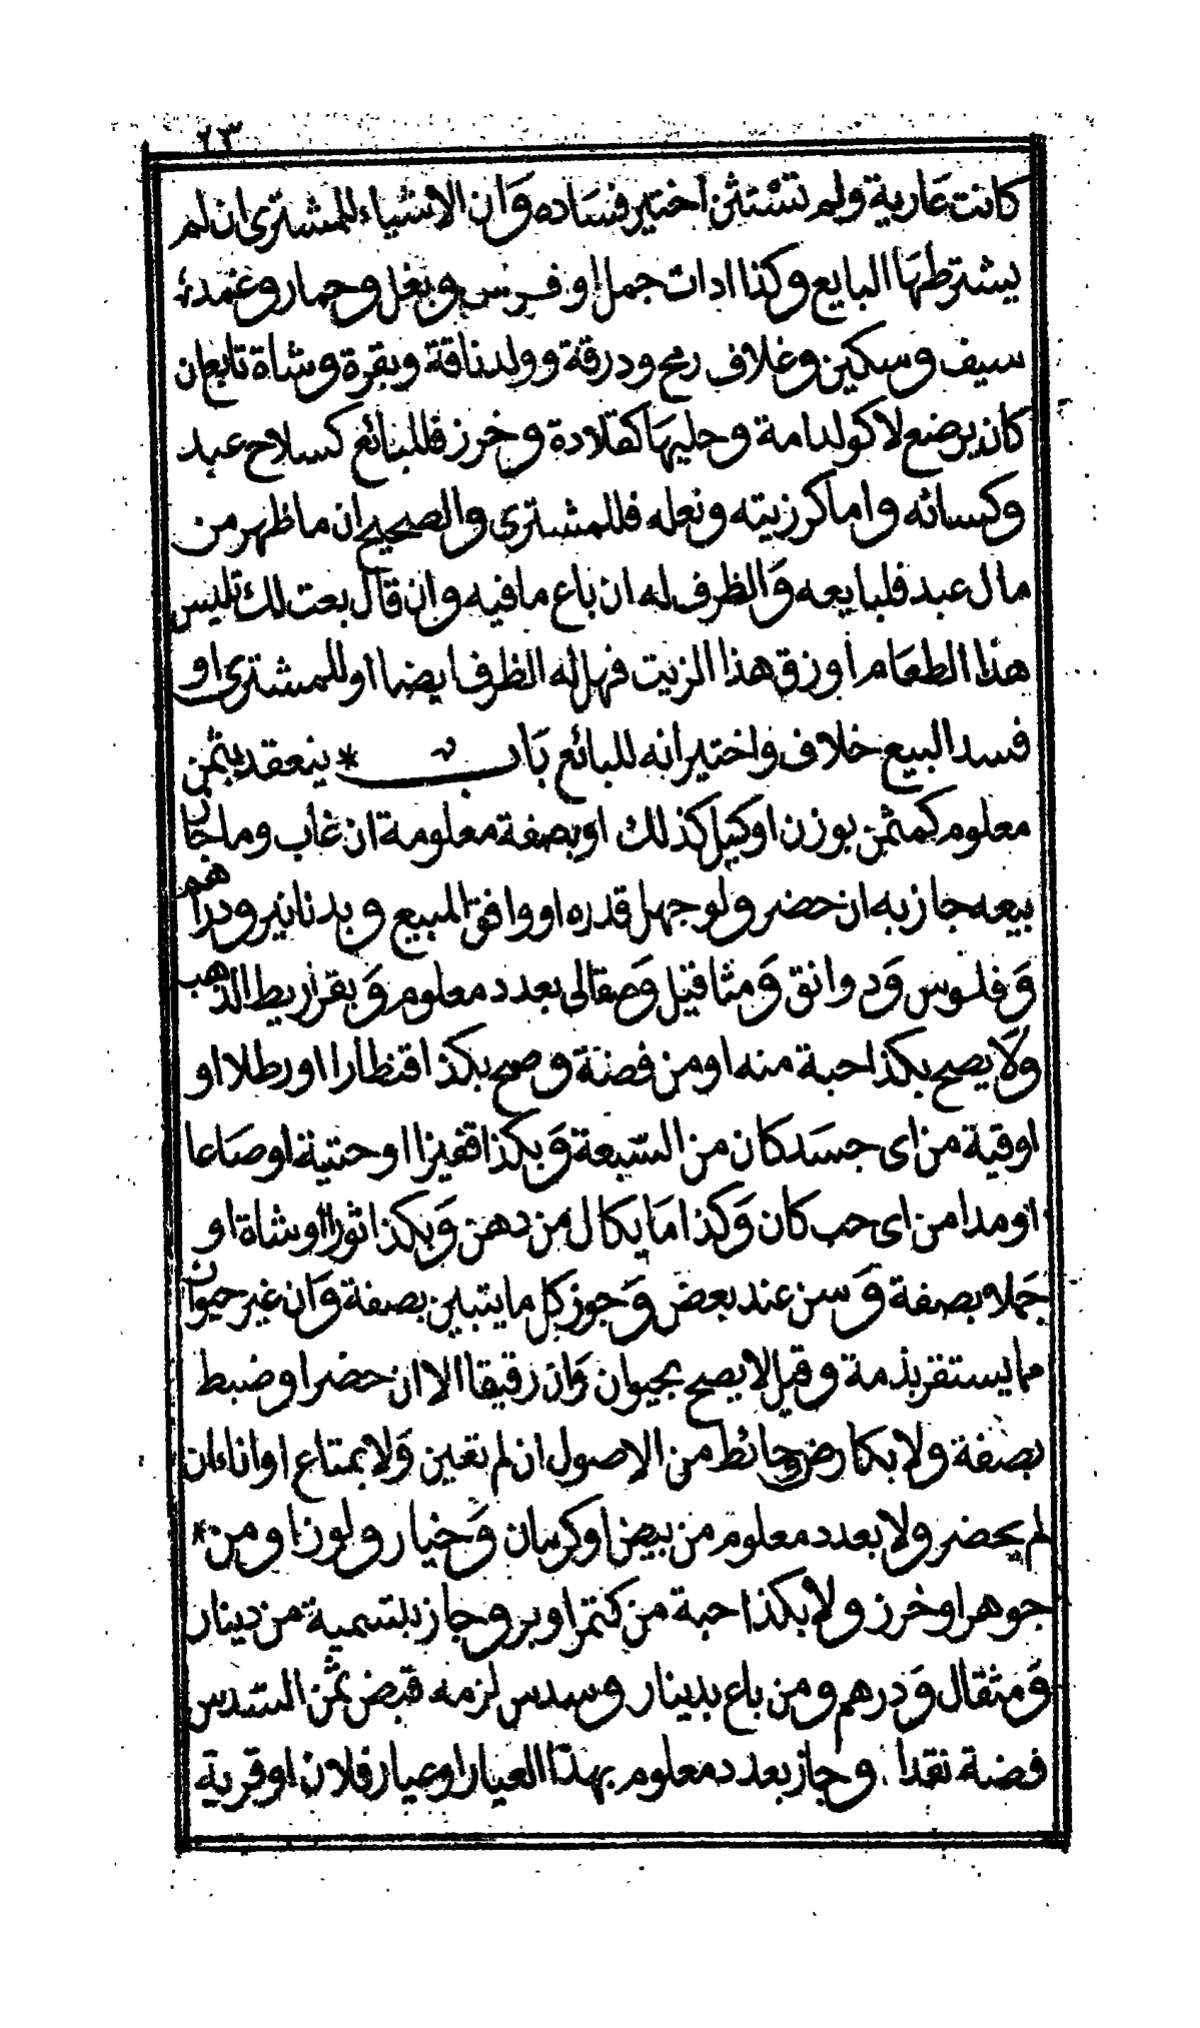 ٢٣
كانت عارية ولم تستثن اختير فساده وان الاشياء للمشترى ان لم
يشترطها البايع وكذا ادات جمل او فرس وبغل وحمار وغمد
سيف وسكين وغلاف رمح ودرقة وولد ناقة وبقرة وشاة تابع ان
كان يرضع لا كولد امة وحليها كقلادة وخرز فللبائع كسلاح عبد
وكسائه واما كرزيته ونعله فللمشترى والصحيح ان ما ظهر من
مال عبد فلبايعه والظرف له ان باع ما فيه وان قال بعت لك تليس
هذا الطعام او زق هذا الزيت فهل له الظرف ايضا او للمشترى او
فسد البيع خلاف واختير انه للبائع باب * ينعقد بثمن
معلوم كمثمن بوزن او كيل كذلك او بصفة معلومة ان غاب وما جاز
بيعه جاز به ان حضر ولو جهل قدره او وافق المبيع وبدنانير ودراهم
وفلوس ودوانق ومثاقيل وصقالى بعدد معلوم وبقراريط الذهب
ولا يصح بكذا حبة منه او من فضة وصح بكذا قنطارا او رطلا او
اوقية من اى جسد كان من السبعة وبكذا قفيزا او حثية او صاعا
او مدا من اى حب كان وكذا ما يكال من دهن وبكذا ثورا او شاة او
جملا بصفة وسن عند بعض وجوز كل ما يتبين بصفة وان غير حيوان
مما يستقر بذمة وقيل لا يصح بحيوان وان رقيقا الا ان حضر او ضبط
بصفة ولا بكارض وحائط من الاصول ان لم تعين ولا بمتاع او اناء ان
لم يحضر ولا بعدد معلوم من بيض او كرسان وخيار ولوز او من *
جوهر او خرز ولا بكذا حبة من كتمر او بر وجاز بتسمية من دينار
ومثقال ودرهم ومن باع بدينار وسدس لزمه قبض ثمن السدس
فضة نقدا وجاز بعدد معلوم بهذا العيار او عيار فلان او قرية